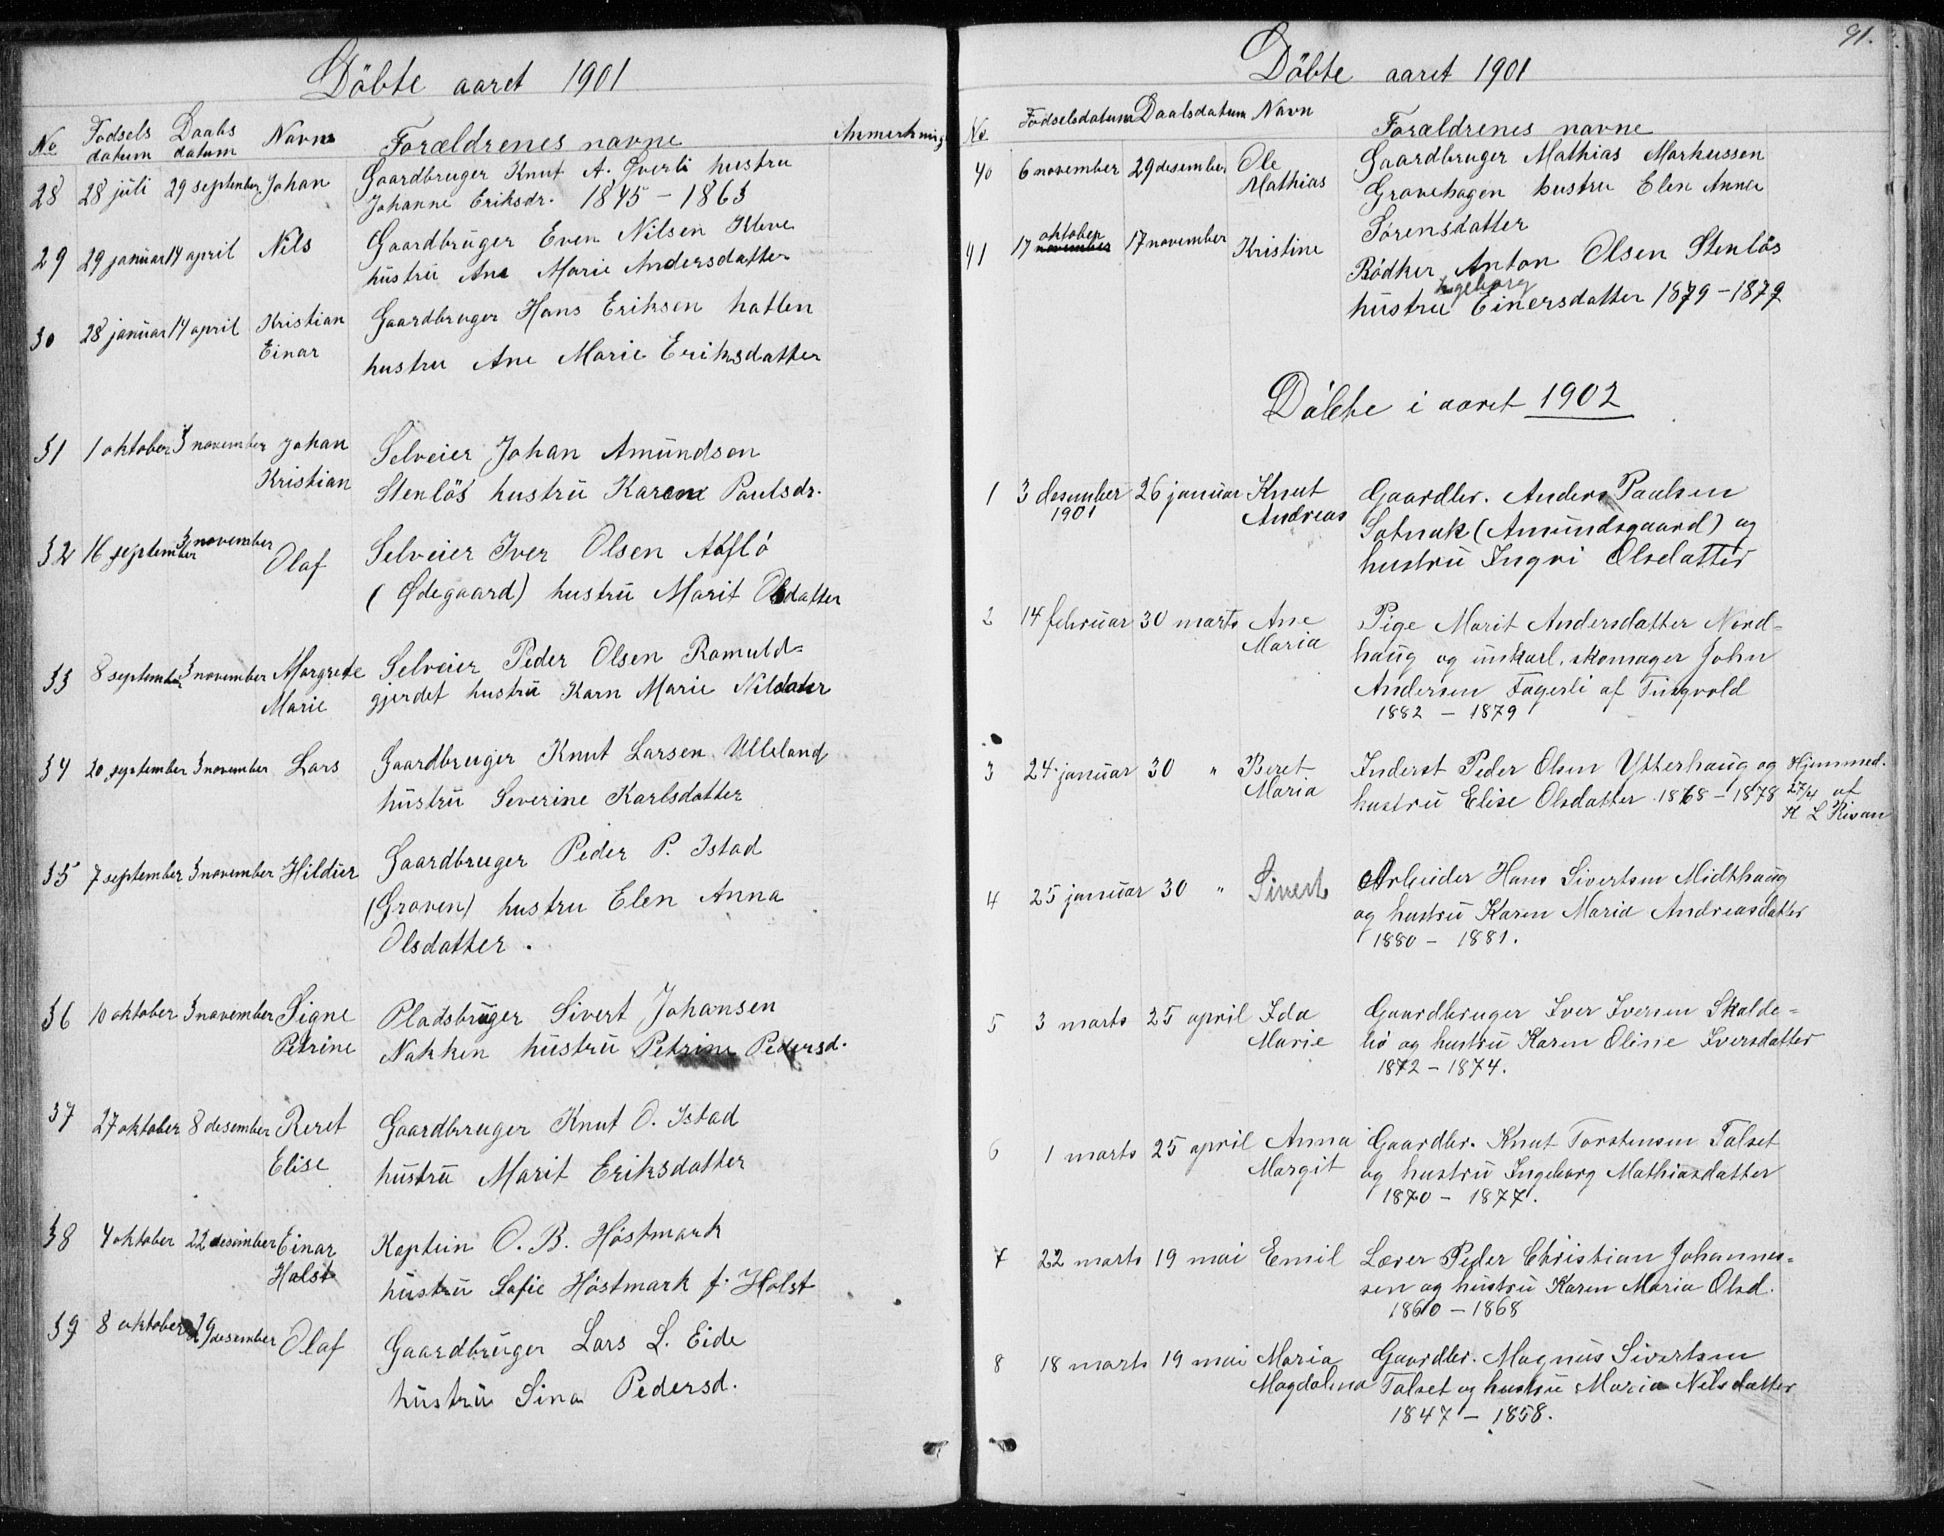 Döbte aaret 1901
No Fodsels datum Daabs datum Navn Forældrenes navne Anmerkning
28 28 juli 29 september Johan Gaardbruger Knut A. Sverli hustru
Johanne Eriksdr. 1845 - 1863
29 29 januar 14 april Nils Gaardbruger Even Nilsen Kleve
hustru Ane Marie Andersdatter
30 28 januar 14 april Kristian Gaardbruger Hans Eriksen hatlen
Einar hustru Ane Marie Eriksdatter
31 1 oktober 3 november Johan Selveier Johan Amundsen
Kristian Stenlös hustru Karen Paulsdr.
32 16 september 3 november Olaf Selveier Iver Olsen Aaflö
(Ødegaard) hustru Marit Olsdatter
33 8 september 3 november Margrete Selveier Peder Olsen Romuld=
Marie gjerdet hustru Karn Marie Nilsdater
34 20 september 3 november Lars Gaardbruger Knut Larsen Ulleland
hustru Severine Karlsdatter
35 7 september 3 november Hildur Gaardbruger Peder P. Istad
(Graven) hustru Elen Anna
Olsdatter.
36 10 oktober 3 november Signe Pladsbruger Sivert Johansen
Petrine Nakken hustru Petrine Pedersd.
37 27 oktober 8 desember Beret Gaardbruger Knut O. Istad
Elise hustru Marit Eriksdatter
38 4 oktober 22 desember Einar Kaptein O. B. Høstmark
Holst hustru Sofie Høstmark f. Holst
39 8 oktober 29 desember Olaf Gaardbruger Lars L. Eide
hustru Sina Pedersd.
91.
Döbte aaret 1901
No Fodselsdatum Daabsdatum Navn Forældrenes navne
40 6 november 29 desember Ole Gaardbruger Mathias Markussen
Mathias Gravehagen hustru Elen Anna
Sørensdatter
oktober
41 17 november 17 november Kristine Rödker Anton Olsen Stenlös
Ingeborg
hustru Einersdatter 1879 - 1879
Döbte i aaret 1902
1 3 desember 26 januar Knut Gaardbr. Anders Paulsen
1901 Andreas Sotnak (Amundsgaard) og
hustru Ingri Olsdatter
2 14 februar 30 marts Ane Pige Marit Andersdatter Nord-
Maria haug og unkarl, skomager John
Andersen Fagerli af Tingvold
1882 - 1879
3 24 januar 30 " Beret Inderst Peder Olsen Ytterhaug og Hjemmed.
Maria hustru Elise Olsdatter 1868 - 1878 27/4 af
K L Risan
4 25 januar 30 " Sivert Arbeider Hans Sivertsen Midthaug
og hustru Karen Maria Andreasdatter
1880 - 1881.
5 3 marts 25 april Ida Gaardbruger Iver Iversen Skalde-
Marie liö og hustru Karen Oline Iversdatter
1872 - 1874.
6 1 marts 25 april Anna Gaardbr. Knut Torstensen Talset
Margit og hustru Ingeborg Mathiasdatter
1870 - 1877.
7 22 marts 19 mai Emil Lærer Peder Christian Johannes-
sen og hustru Karen Maria Olsd.
1860 - 1868
8 18 marts 19 mai Maria Gaardbr. Magnus Sivertsen
Magdalena Talset og hustru Maria Nilsdatter
1847 - 1858.